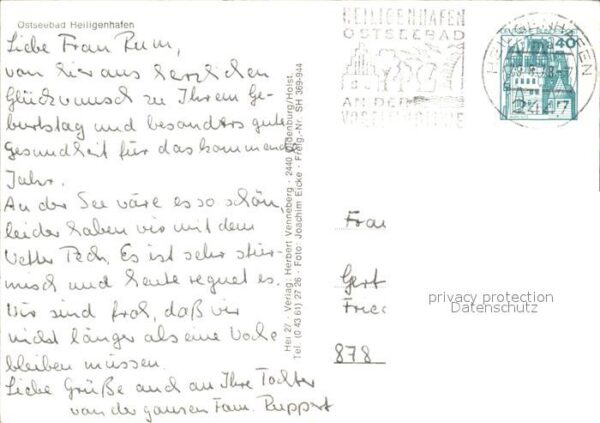 Ostseebad Heiligenhafen
Liebe Frau Rum,
von hier aus herzlichen
Glückwunsch zu Ihrem Ge-
burtstag und besonders gute
Gesundheit für das kommende
Jahr.
An der See wäre es so schön,
leider haben wir mit dem
Wetter Pech. Es ist sehr stür-
misch und heute regnet es.
Wir sind froh, daß wir
nicht länger als eine Woche
bleiben müssen.
Liebe Grüße auch an Ihre Tochter
von der ganzen Fam. Ruppert
Hei 27 · Verlag: Herbert Venneberg · 2440 Oldenburg/Holst.
Tel. (0 43 61) 27 26 · Foto: Joachim Eicke · Freig.-Nr. SH 369-944
HEILIGENHAFEN
OSTSEEBAD
AN DER
HEILIGENHAFEN
2447
40
Frau
Gert
Frie
878
privacy protection
Datenschutz